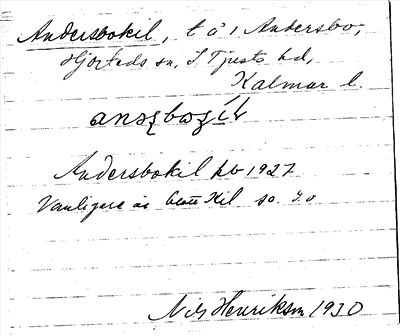 Andersbokil, t å i Andersbo,
Hjorteds sn, S Tjusts hd,
Kalmar l.
Andersbokil pb 1927
Vanligare är bara Kil so. I.o
Nils Henriksm 1930